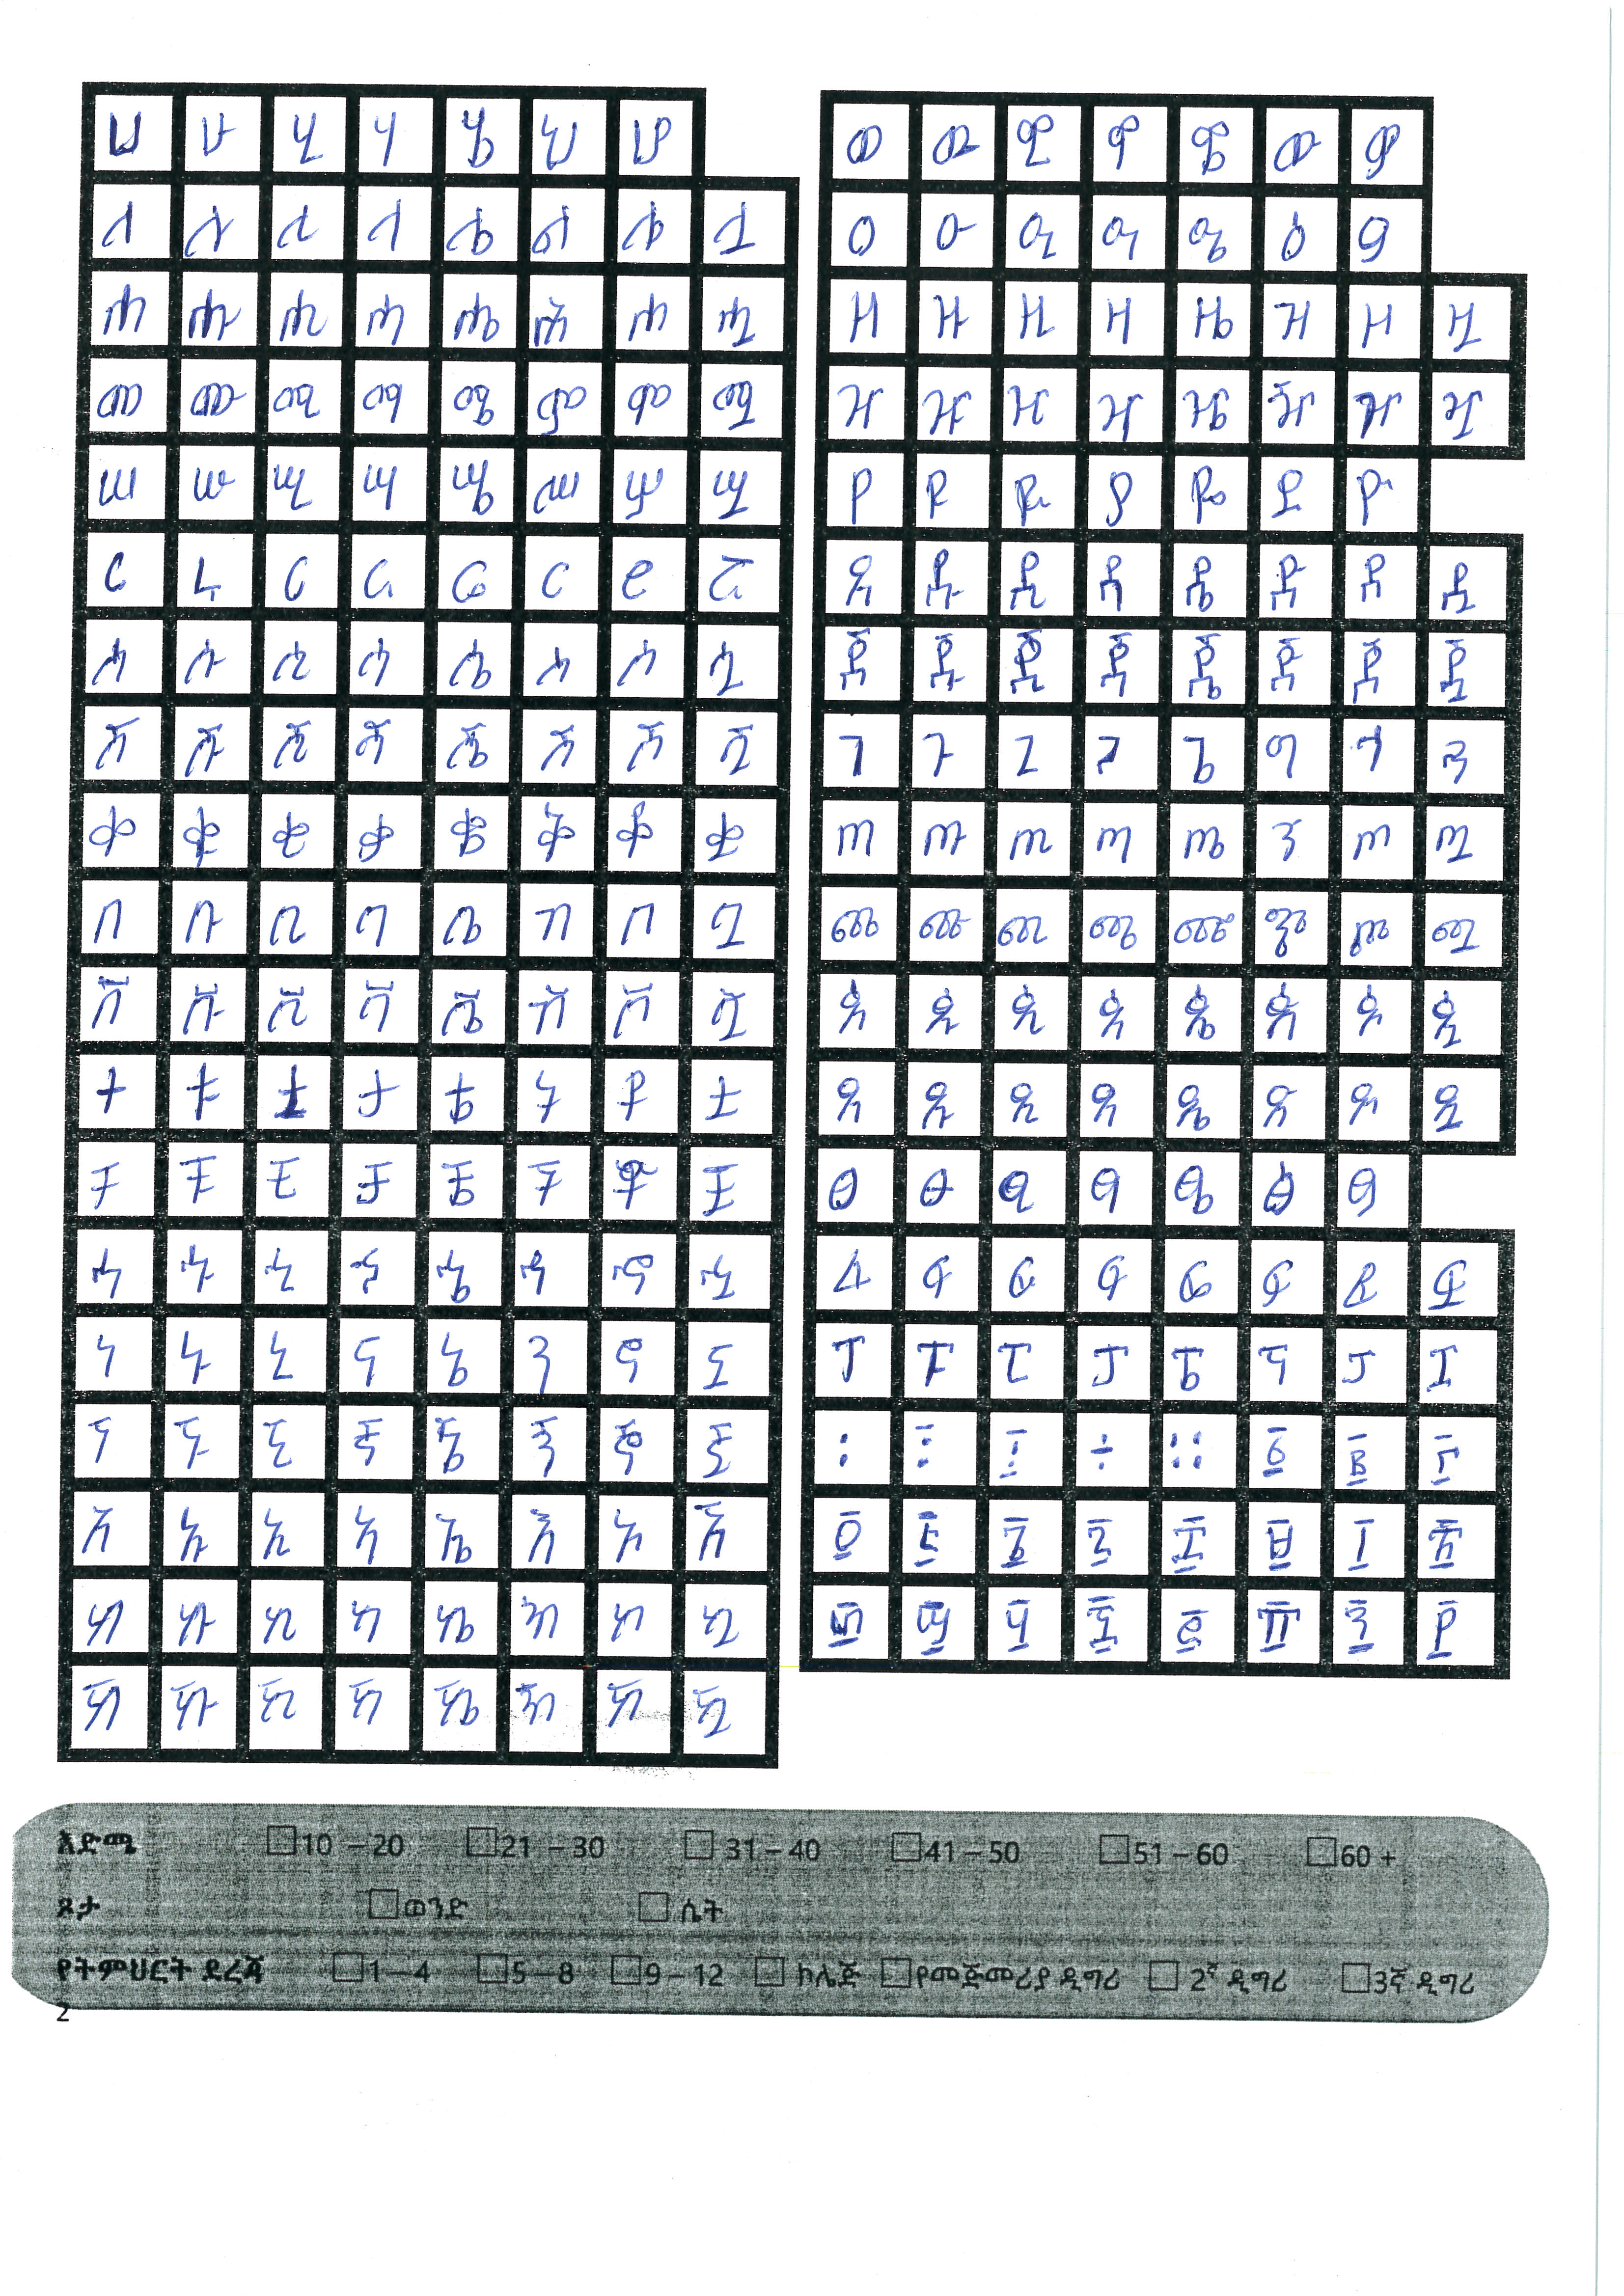 ሀ ሁ ሂ ሃ ሄ ህ ሆ
ለ ሉ ሊ ላ ሌ ል ሎ ሏ
ሐ ሑ ሒ ሓ ሔ ሕ ሖ ሗ
መ ሙ ሚ ማ ሜ ም ሞ ሟ
ሠ ሡ ሢ ሣ ሤ ሥ ሦ ሧ
ረ ሩ ሪ ራ ሬ ር ሮ ሯ
ሰ ሱ ሲ ሳ ሴ ስ ሶ ሷ
ሸ ሹ ሺ ሻ ሼ ሽ ሾ ሿ
ቀ ቁ ቂ ቃ ቄ ቅ ቆ ቋ
በ ቡ ቢ ባ ቤ ብ ቦ ቧ
ቨ ቩ ቪ ቫ ቬ ቭ ቮ ቧ
ተ ቱ ቲ ታ ቴ ት ቶ ቷ
ቸ ቹ ቺ ቻ ቼ ች ቾ ቿ
ኀ ኁ ኂ ኃ ኄ ኅ ኆ ኋ
ነ ኑ ኒ ና ኔ ን ኖ ኗ
ኘ ኙ ኚ ኛ ኜ ኝ ኞ ኟ
አ ኡ ኢ ኣ ኤ እ ኦ ኧ
ከ ኩ ኪ ካ ኬ ክ ኮ ኳ
ኸ ኹ ኺ ኻ ኼ ኽ ኾ ዃ
ወ ዉ ዊ ዋ ዌ ው ዎ
ዐ ዑ ዒ ዓ ዔ ዕ ዖ
ዘ ዙ ዚ ዛ ዜ ዝ ዞ ዟ
ዠ ዡ ዢ ዣ ዤ ዥ ዦ ዧ
የ ዩ ዪ ያ ዬ ይ ዮ
ደ ዱ ዲ ዳ ዴ ድ ዶ ዷ
ጀ ጁ ጂ ጃ ጄ ጅ ጆ ጇ
ገ ጉ ጊ ጋ ጌ ግ ጎ ጓ
ጠ ጡ ጢ ጣ ጤ ጥ ጦ ጧ
ጨ ጩ ጪ ጫ ጬ ጭ ጮ ጯ
ጰ ጱ ጲ ጳ ጴ ጵ ጶ ጷ
ጸ ጹ ጺ ጻ ጼ ጽ ጾ ጿ
ፀ ፁ ፂ ፃ ፄ ፅ ፆ
ፈ ፉ ፊ ፋ ፌ ፍ ፎ ፏ
ፐ ፑ ፒ ፓ ፔ ፕ ፖ ፗ
፡ ፥ ፤ ÷ ። ፩ ፪ ፫
፬ ፭ ፮ ፯ ፰ ፱ ፲ ፳
፴ ፵ ፶ ፷ ፸ ፹ ፺ ፻
እድሜ 10 – 20 21 – 30 31 – 40 41 – 50 51 – 60 60 +
ጾታ ወንድ ሴት
የትምህርት ደረጃ 1 – 4 5 – 8 9 – 12 ኮሌጅ የመጅመሪያ ዲግሪ 2ኛ ዲግሪ 3ኛ ዲግሪ
2